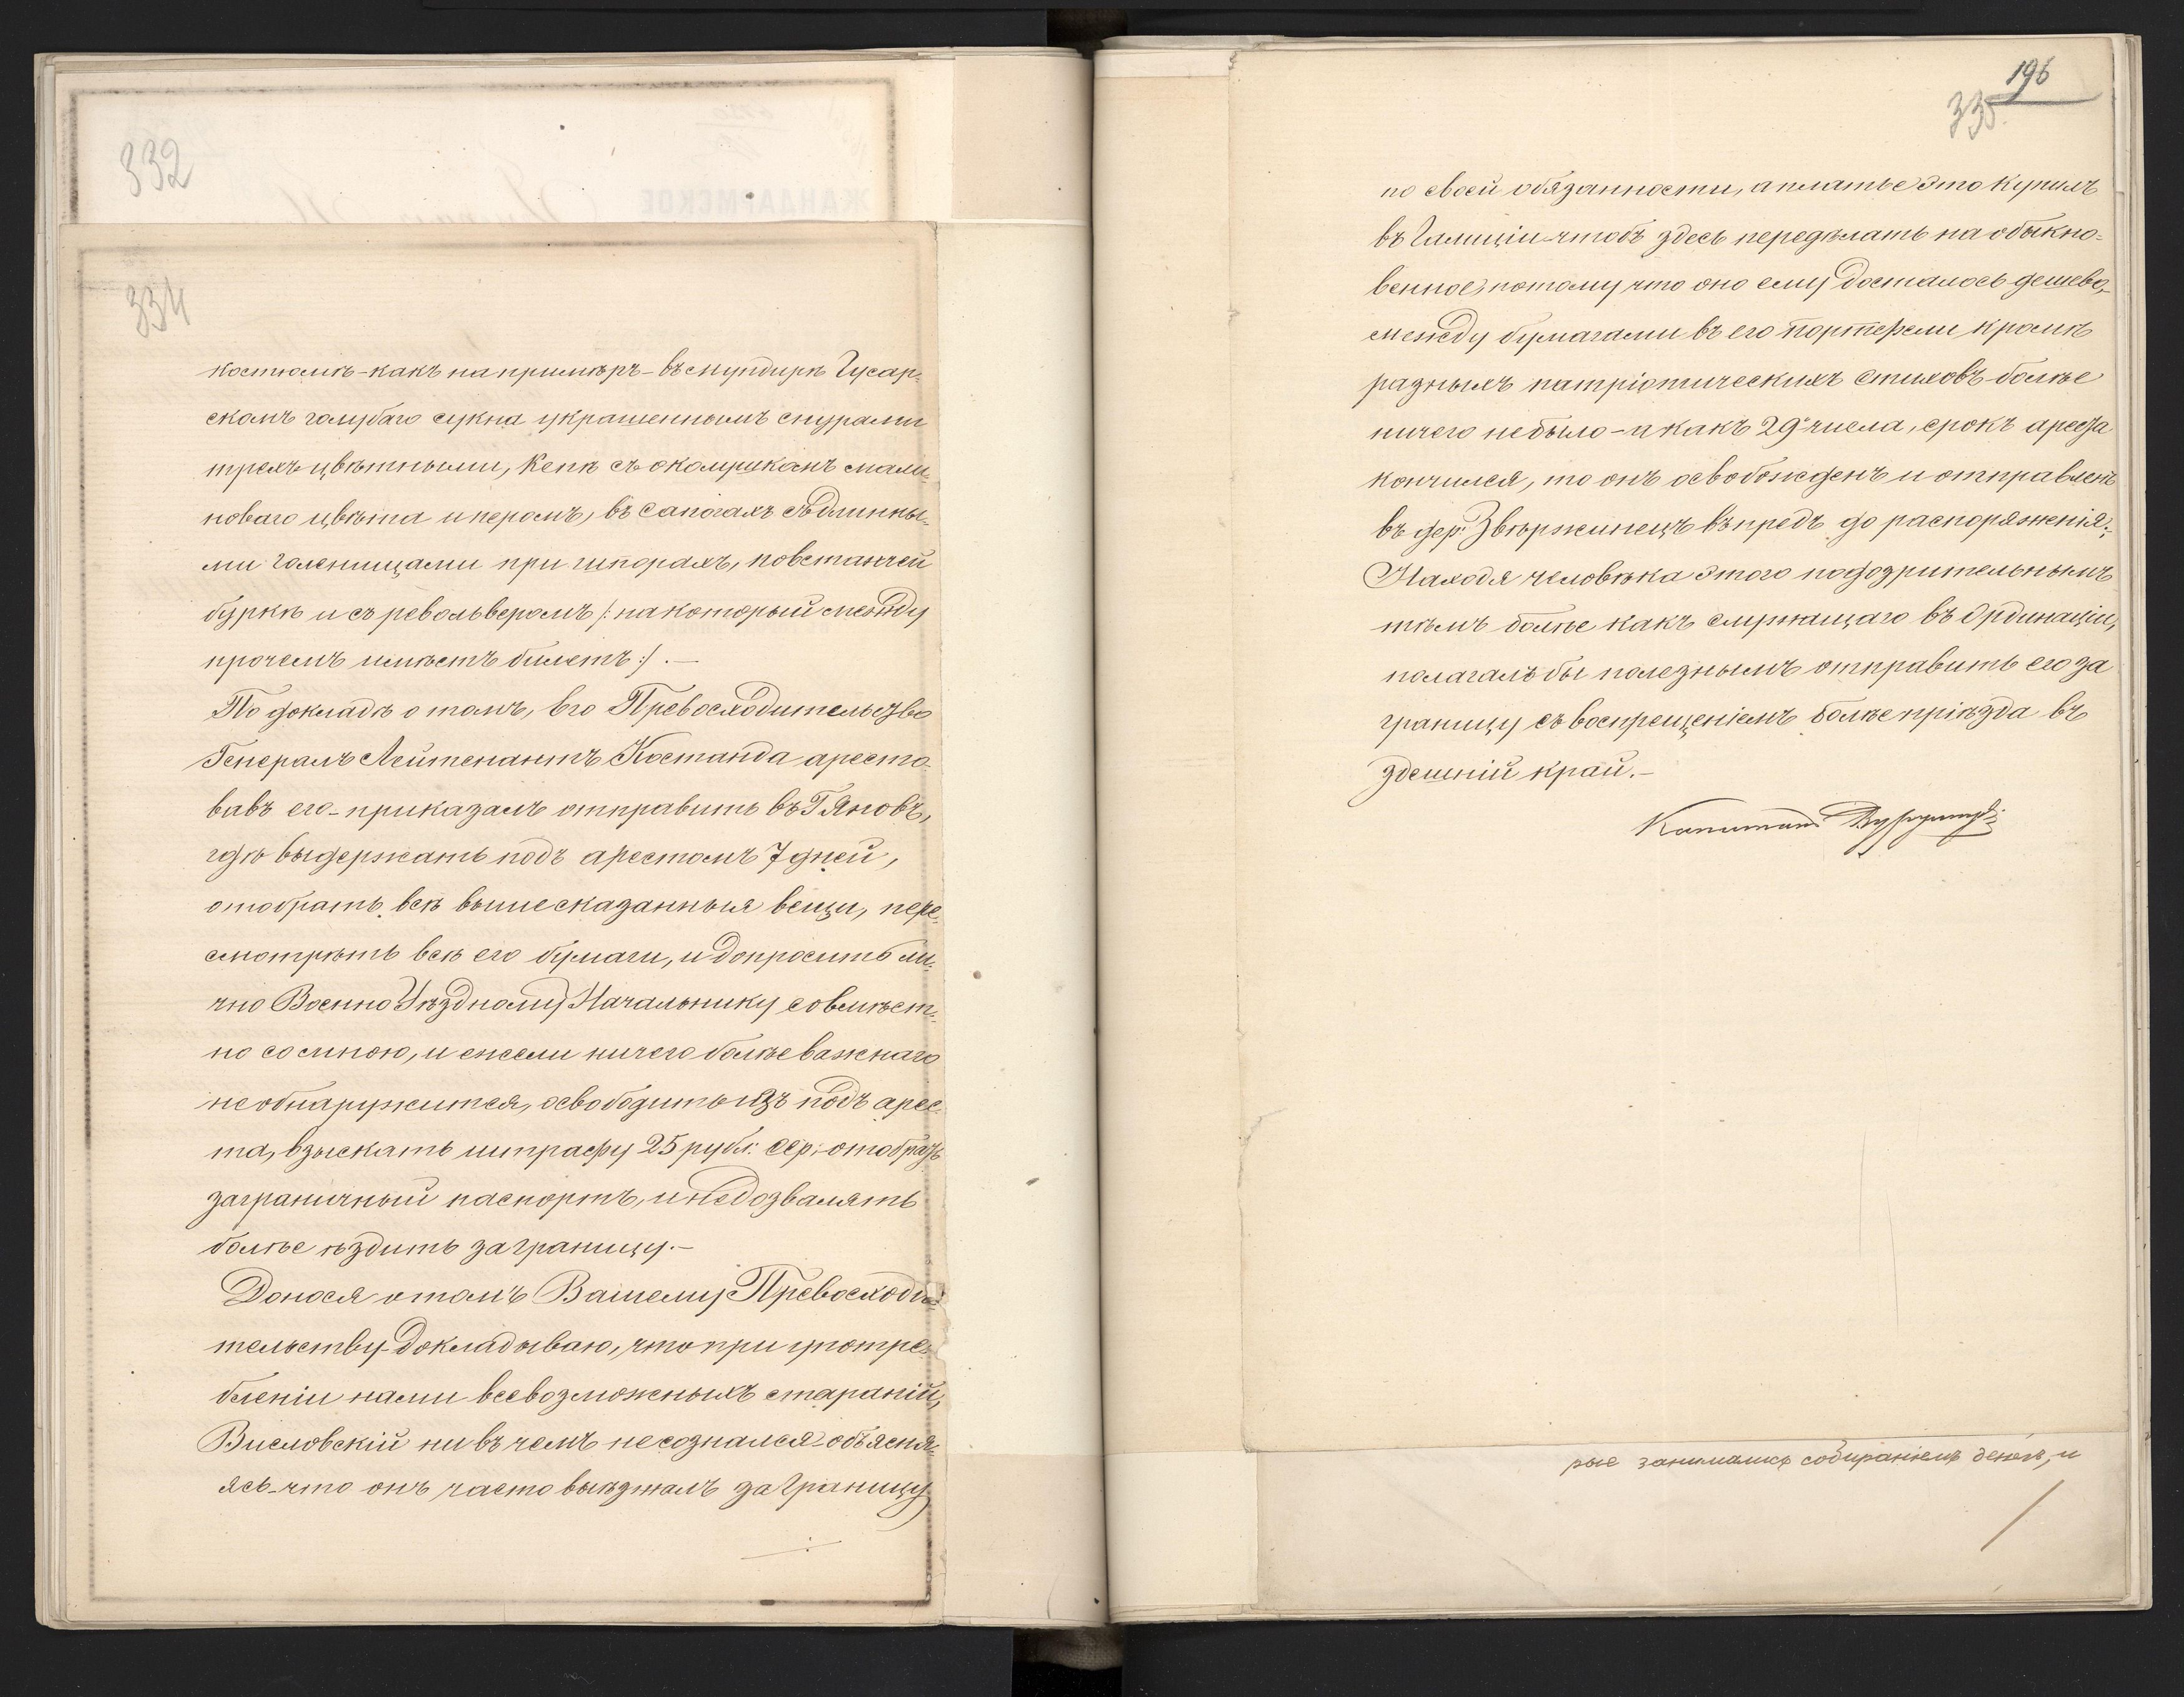 332
334
костюмѣ-какъ на примѣръ-въ мундирѣ Гусар-
скомъ голубаго сукна украшеннымъ снурами
трехъ цвѣтными, Кепѣ съ околушкомъ мали-
новаго цвѣта и перомъ, въ сапогахъ съ длинны-
ми голенищами при шпорахъ, повстанчей
буркѣ и съ револьверомъ /:на который между
прочемъ имѣетъ билетъ:/.—
По докладѣ о томъ, Его Превосходительство
Генералъ Лейтенантъ Костанда аресто-
вавъ его-приказалъ отправить въ Г Яновъ,
гдѣ выдержать подъ арестомъ 7 дней,
отобрать всѣ вышесказанныя вещи, пере-
смотрѣть всѣ его бумаги, и допросить ли-
чно Военно Уѣздному Начальнику совмѣст-
но со мною, и ежели ничего болѣе важнаго
не обнаружится, освободить изъ подъ арес-
та, взыскать штрафу 25 рубл: сер; отобрать
заграничный паспортъ, и недозвалять
болѣе ѣздить заграницу.—
Донося о томъ Вашему Превосходи-
тельству-Докладываю, что при употре-
бленіи нами всевозможныхъ стараній,
Висловскій ни въ чемъ не сознался-объясня-
ясь-что онъ часто выѣзжалъ за Границу
196
335
по своей обязанности, а платье это Купилъ
въ Галиціи-чтобъ здесь передѣлать на обыкно-
венное, потому что оно ему досталось дешево,
между бумагами въ его портефели кромѣ
разныхъ патріотическихъ стиховъ-болѣе
ничего небыло-и какъ 29 числа, срокъ ареста
кончился, то онъ освобожденъ и отправленъ
въ дер: Звѣржинецъ въпредъ до распоряженія:
Находя человѣка этого подозрительнымъ
тѣмъ болѣе какъ служащаго въ Ординаціи,
полагалъ бы полезнымъ отправить его за
границу съ воспрещеніемъ болѣе пріѣзда въ
здешній край.—
Капитанъ
рые занимались собираніемъ денегъ, и